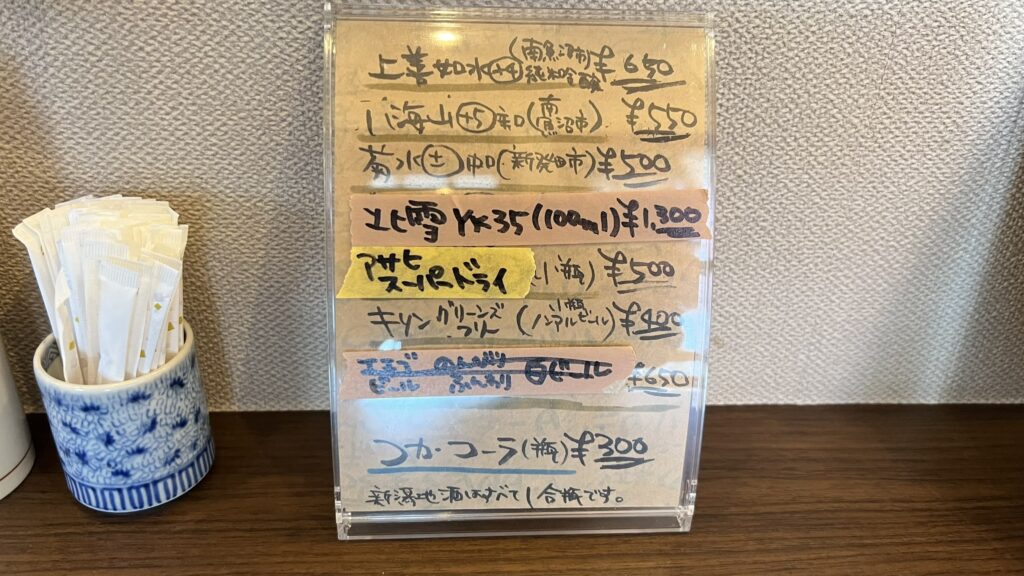 上善如水(+4)(南魚沼市 純米吟醸)¥650
八海山(+5)和(南魚沼市)¥550
菊水(+1)中口(新発田市)¥500
北雪YK35(100ml)¥1,300
アサヒスーパードライ(小瓶)¥500
キリングリーンズフリー(小瓶 ノンアルビール)¥400
エチゴビール のんびりふんわり 白ビール ¥650
コカ・コーラ(瓶)¥300
新潟地酒はすべて1合瓶です。